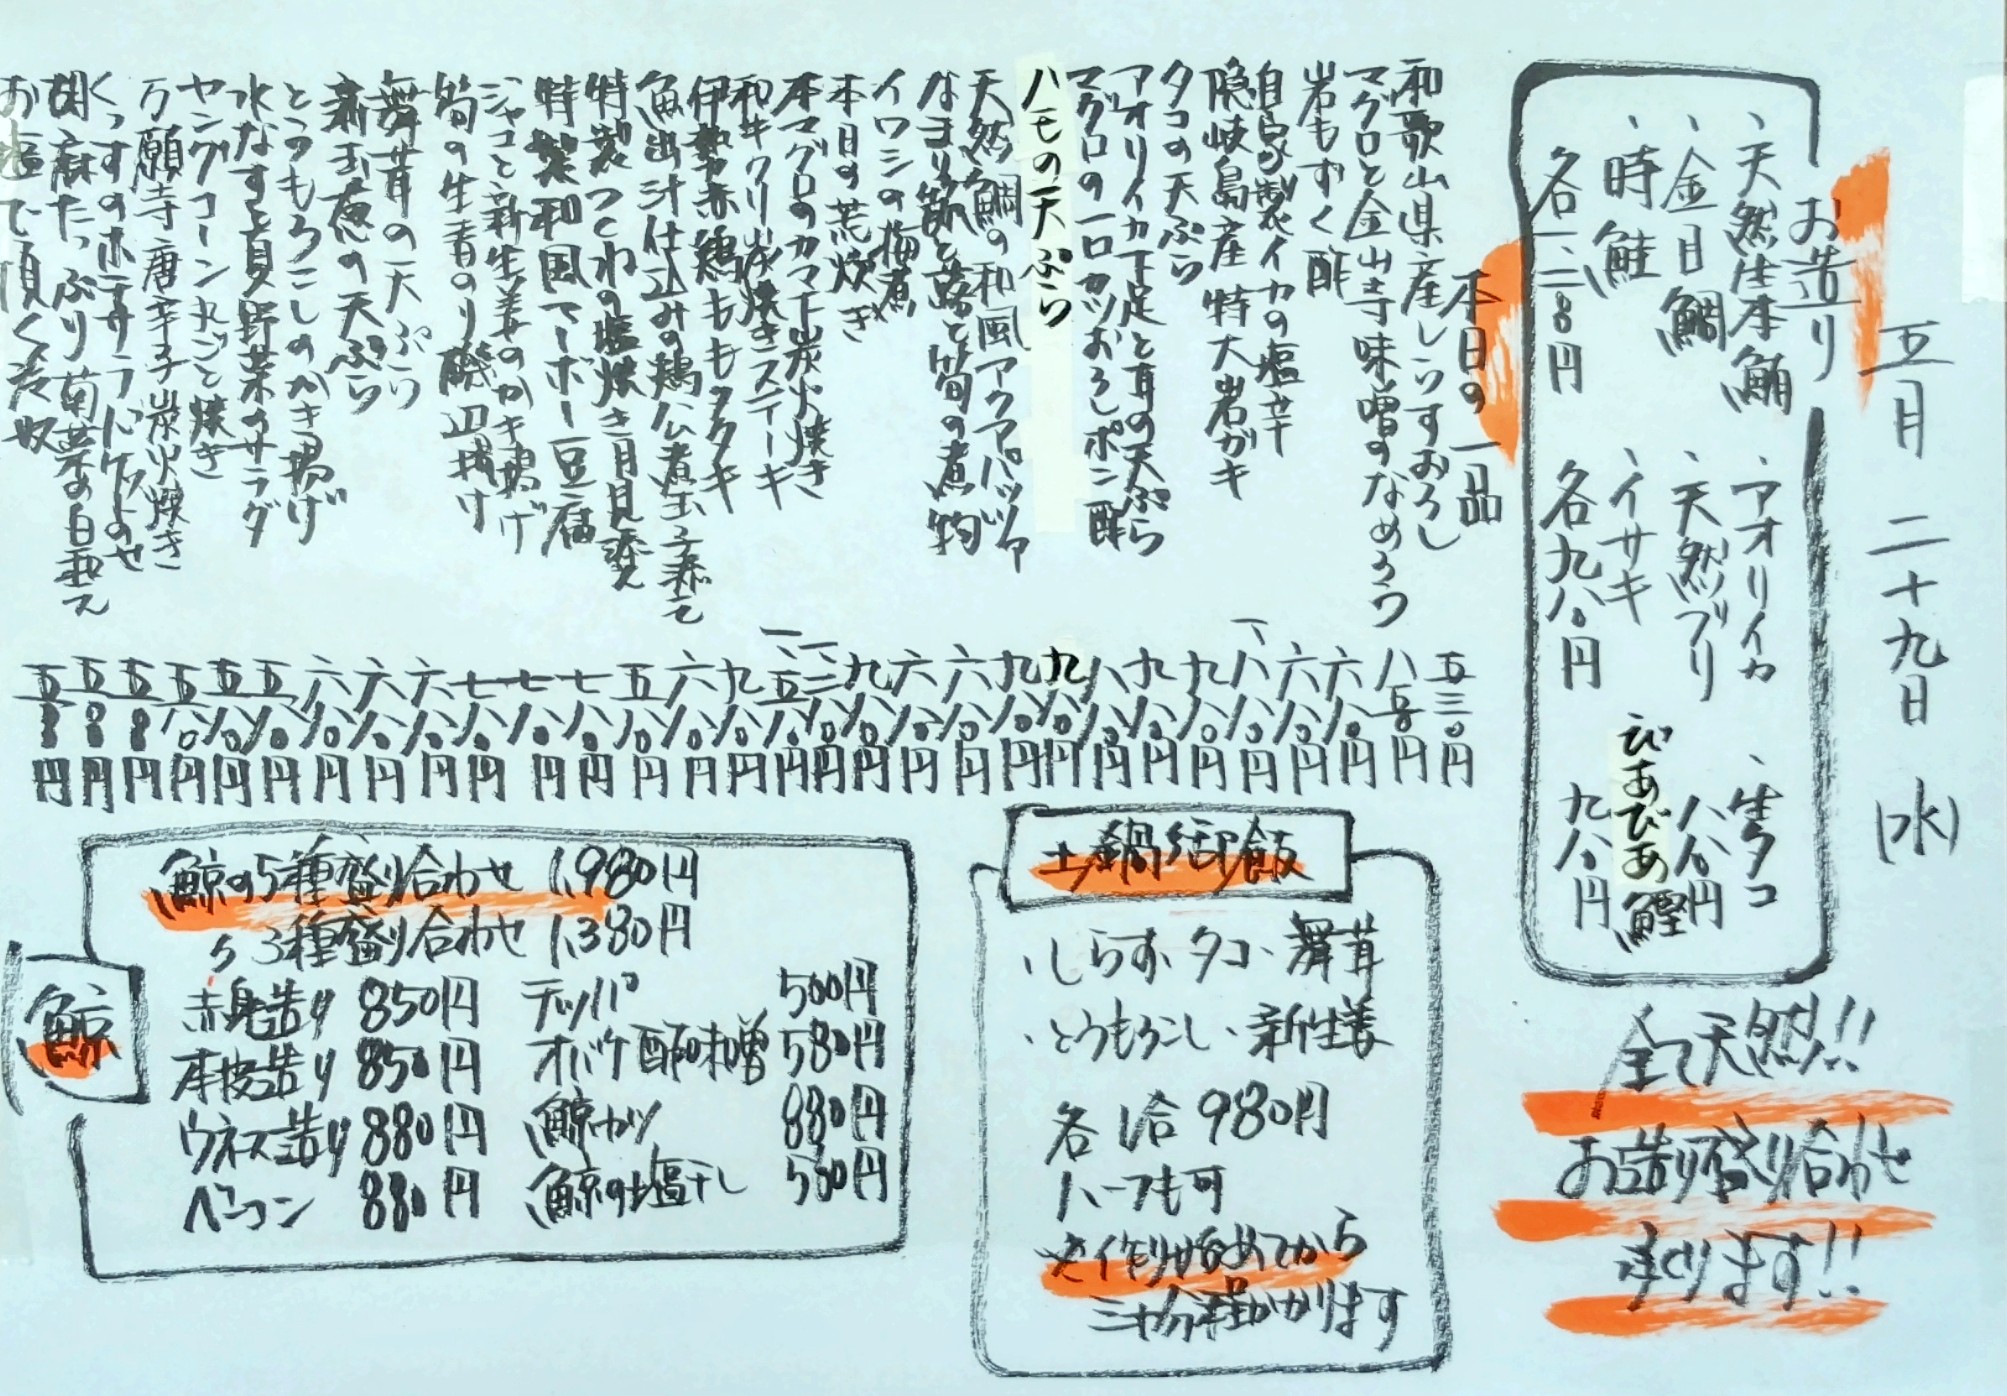 五月二十九日(水)
お造り
、天然生本鮪
、金目鯛
、時鮭
各一、二八〇円
、アオリイカ
、天然ブリ
、イサキ
各九八〇円
、生タコ
八八〇円
ぴあぴあ鰹
九八〇円
全て天然!!
お造り盛り合わせ
承ります!!
本日の一品
和歌山県産しらすおろし 五三〇円
マグロと金山寺味噌のなめろう
岩もずく酢 六八〇円
自家製イカの塩辛 六八〇円
隠岐島産 特大岩ガキ
タコの天ぷら 九八〇円
アオリイカ下足と耳の天ぷら 九八〇円
マグロの一口カツおろしポン酢 八八〇円
ハモの天ぷら 九八〇円
天然鯛の和風アクアパッツァ 九八〇円
なまり節と蕗と筍の煮物 六八〇円
イワシの梅煮 六八〇円
本日の荒炊き 九八〇円
本マグロのカマ下炭火焼き
和牛クリ炭焼きステーキ
伊勢赤鶏ももタタキ 九八〇円
魚出汁仕込みの鶏公煮玉子添え 六八〇円
特製つくねの塩焼き月見添え 五八〇円
特製和風マーボー豆腐 七八〇円
ジャコと新生姜のかき揚げ 七八〇円
筍の生青のり磯辺揚げ 七八〇円
舞茸の天ぷら 六八〇円
新玉葱の天ぷら 六八〇円
とうもろこしのかき揚げ 六八〇円
水なすと夏野菜のサラダ 五八〇円
ヤングコーン丸ごと焼き 五八〇円
万願寺唐辛子炭火焼き 五八〇円
くっすのポテサラバケットのせ 五八〇円
胡麻たっぷり菊菜の白和え 五八〇円
お塩で頂く冷奴 五八〇円
土鍋御飯
、しらす、タコ、舞茸
、とうもろこし、新生姜
各1合 980円
ハーフも可
※作り始めてから
三十分程かかります
鯨
鯨の5種盛り合わせ 1,980円
〃 3種盛り合わせ 1,380円
赤身造り 850円
本皮造り 850円
ウネス造り 880円
ベーコン 880円
テッパ 500円
オバケ酢味噌 580円
鯨カツ 880円
鯨の塩干し 580円